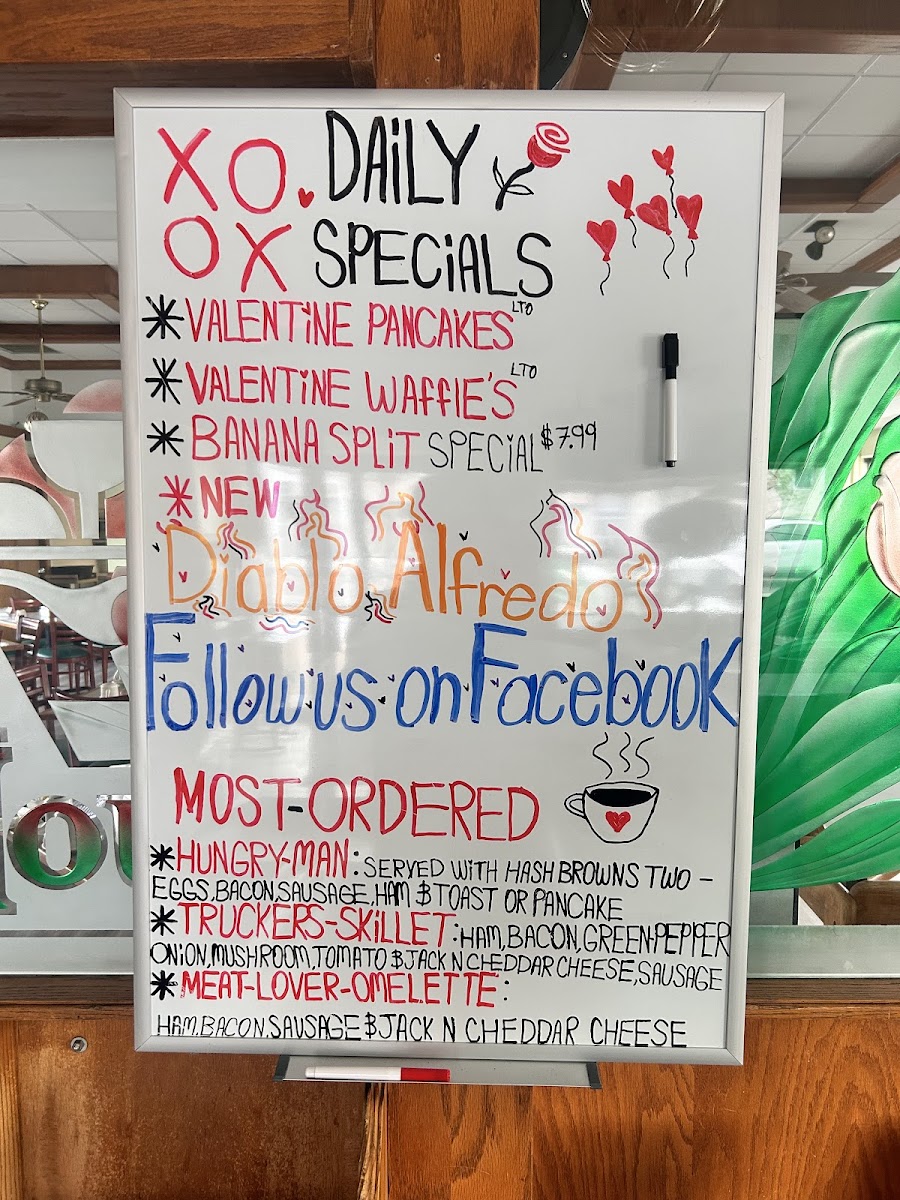 XO. DAiLY
OX SPECiALS
*VALENTiNE PANCAKES LTO
*VALENTiNE WAFFlE'S LTO
*BANANA SPLiT SPECiAL $7.99
*NEW
Diablo Alfredo
Follow us on Facebook
MOST-ORDERED
*HUNGRY-MAN: SERVED WiTH HASH BROWNS TWO -
EGGS, BACON, SAUSAGE, HAM $ TOAST OR PANCAKE
*TRUCKERS-SKiLLET: HAM, BACON, GREEN-PEPPER
ONiON, MUSHROOM, TOMATO $ JACK N CHEDDAR CHEESE, SAUSAGE
*MEAT-LOVER-OMELETTE:
HAM, BACON, SAUSAGE $ JACK N CHEDDAR CHEESE